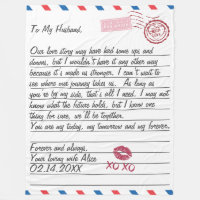 To My Husband,
Our love story may have had some ups and
downs, but I wouldn't have it any other way
because it's made us stronger. I can't wait to
see where our journey takes us. As long as
you're by my side, that's all I need. I may not
know what the future holds, but I know one
thing for sure, we'll be together.
You are my today, my tomorrow and my forever.
Forever and always,
Your loving wife Alice
02.14.20XX
XO XO